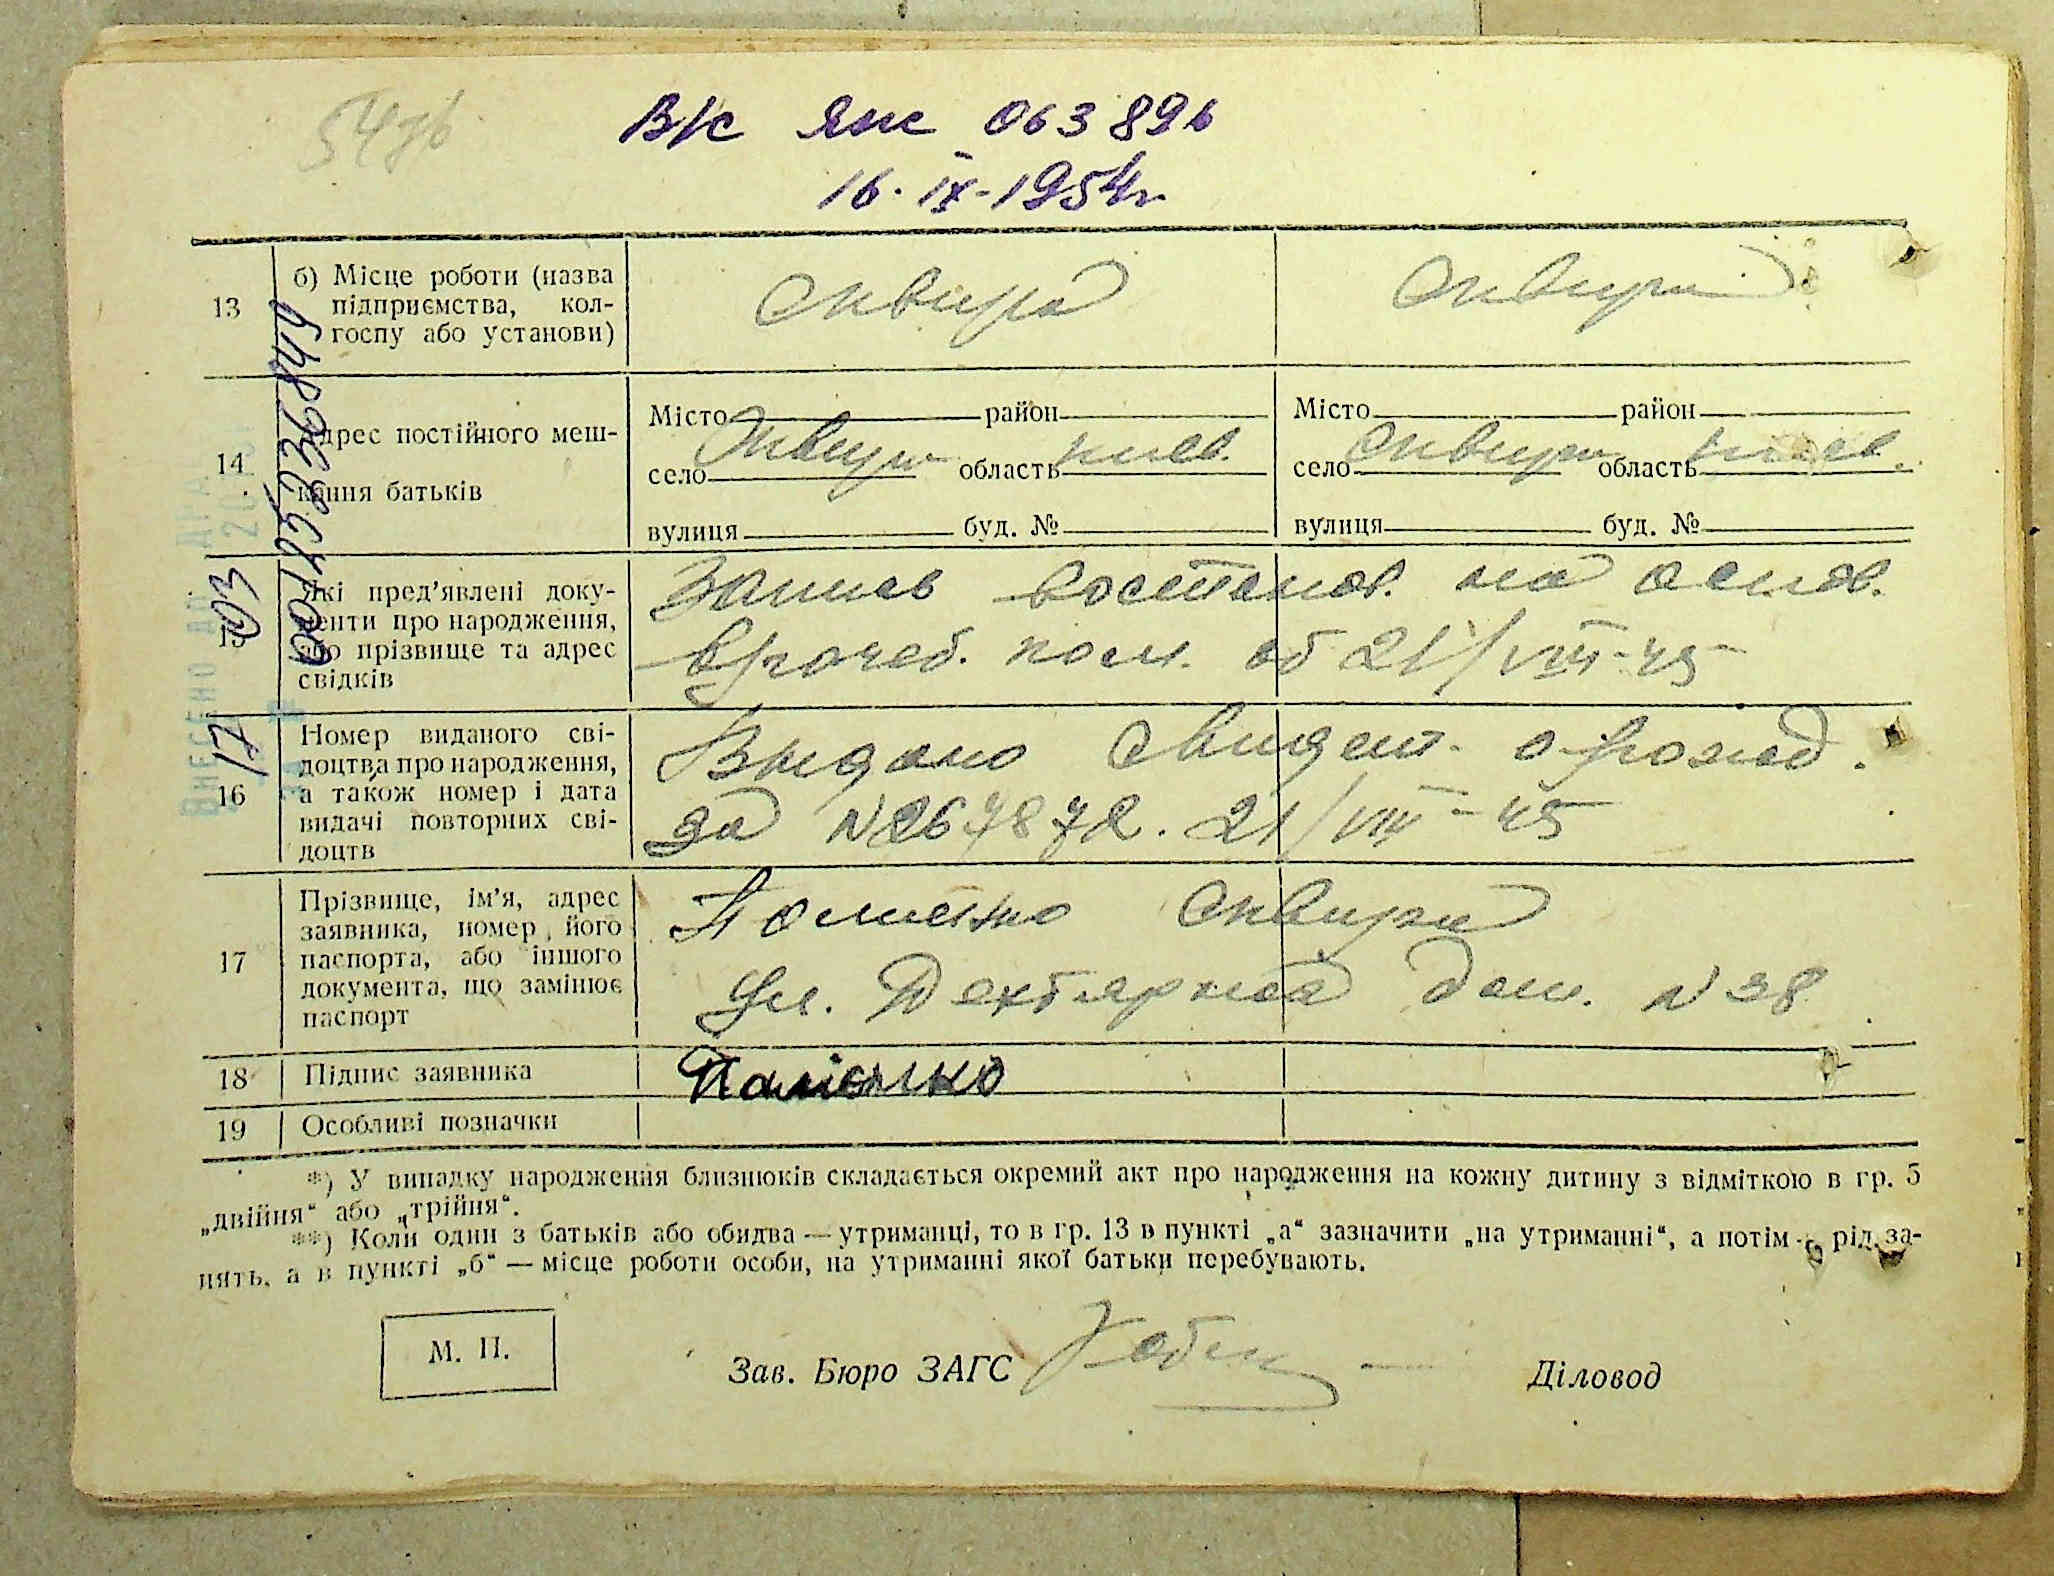 В/с ЯЖ 063896
16. IX-1954г
13
б) Місце роботи (назва
підприємства, кол-
госпу або установи)
Сквира
Сквира
14
Адрес постійного меш-
кання батьків
Місто район
село Сквира область Киев.
вулиця буд. №
Місто район
село Сквира область Киев.
вулиця буд. №
15
Які пред’явлені доку-
менти про народження,
або прізвище та адрес
свідків
Запись востанов. на основ.
врачеб. ком. от 21/VIII-45
16
Номер виданого сві-
доцтва про народження,
а також номер і дата
видачі повторних сві-
доцтв
Выдано свидет. о рожд.
за №267872. 21/VIII-45
17
Прізвище, ім’я, адрес
заявника, номер його
паспорта, або іншого
документа, що замінює
паспорт
Сквира
ул. Дехтярная дом. №38
18
Підпис заявника
19
Особливі позначки
*) У випадку народження близнюків складається окремий акт про народження на кожну дитину з відміткою в гр. 5
„двійня“ або „трійня“.
**) Коли один з батьків або обидва — утриманці, то в гр. 13 в пункті „а“ зазначити „на утриманні“, а потім — рід за-
нять, а в пункті „б“ — місце роботи особи, на утриманні якої батьки перебувають.
М. П.
Зав. Бюро ЗАГС
Діловод